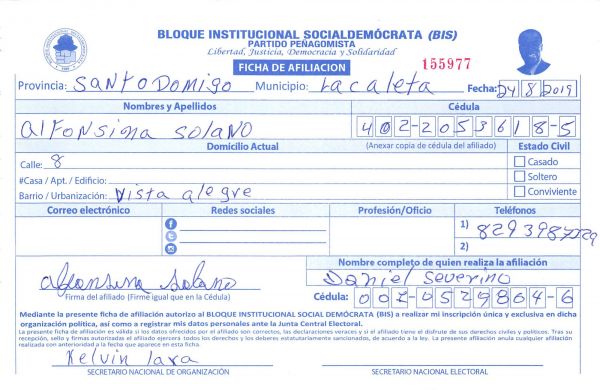 BLOQUE INSTITUCIONAL SOCIALDEMÓCRATA (BIS)
PARTIDO PEÑAGOMISTA
Libertad, Justicia, Democracia y Solidaridad
FICHA DE AFILIACION
155977
Provincia: Santo Domigo Municipio: La caleta Fecha: 24/8/2019
Nombres y Apellidos Cédula
alfonsina Solano 402-2053618-5
Domicilio Actual (Anexar copia de cédula del afiliado) Estado Civil
Calle: 8 Casado
#Casa / Apt. / Edificio: Soltero
Barrio / Urbanización: Vista alegre Conviviente
Correo electrónico Redes sociales Profesión/Oficio Teléfonos
1) 829398
2)
Nombre completo de quien realiza la afiliación
alfonsina solano Daniel Severino
Firma del afiliado (Firme igual que en la Cédula) Cédula: 001-0529864-6
Mediante la presente ficha de afiliación autorizo al BLOQUE INSTITUCIONAL SOCIAL DEMÓCRATA (BIS) a realizar mi inscripción única y exclusiva en dicha
organización política, así como a registrar mis datos personales ante la Junta Central Electoral.
La presente ficha de afiliación es válida si los datos ofrecidos por el afiliado son correctos, las declaraciones veraces y si el afiliado tiene el disfrute de sus derechos civiles y políticos. Tras su
recepción, sello y firmas autorizadas el afiliado ejercerá todos los derechos y los deberes estatutariamente sancionados, de acuerdo a la ley. La presente afiliación anula cualquier afiliación
realizada con anterioridad a la fecha que aparece en esta ficha.
Kelvin lara
SECRETARIO NACIONAL DE ORGANIZACIÓN SECRETARIO NACIONAL ELECTORAL